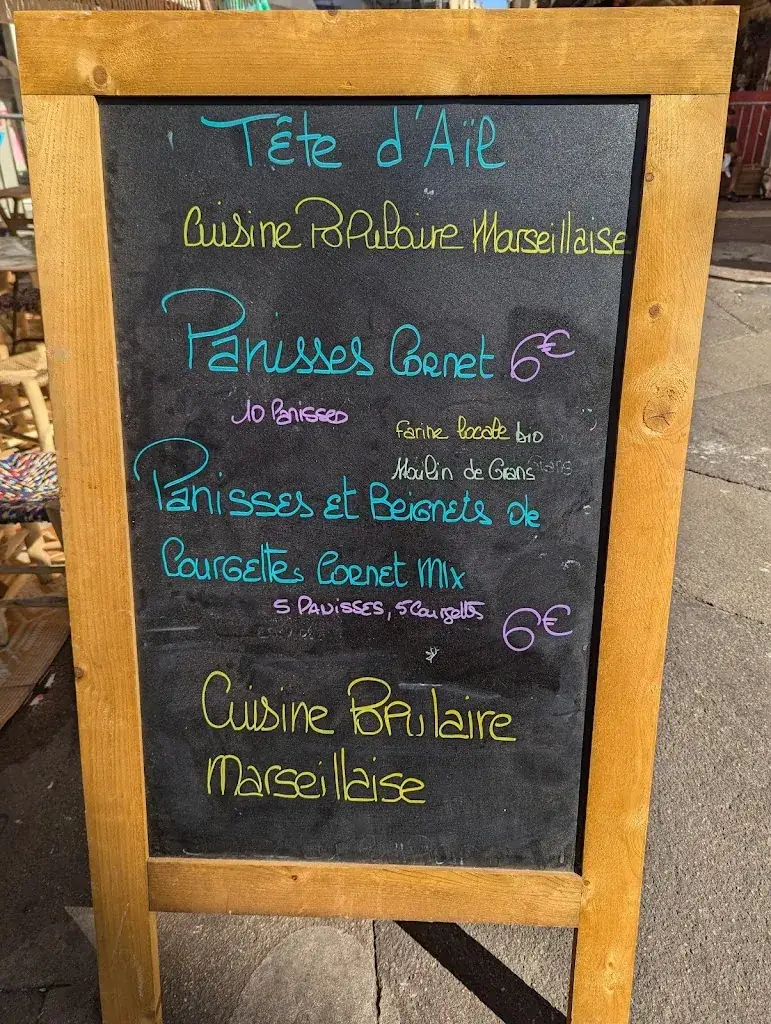 Tête d'Aïl
Cuisine Populaire Marseillaise
Panisses Cornet 6€
10 Panisses
farine locale bio
Moulin de Grans
Panisses et Beignets de
Courgettes Cornet Mix
5 Panisses, 5 Courgettes 6€
Cuisine Populaire
Marseillaise